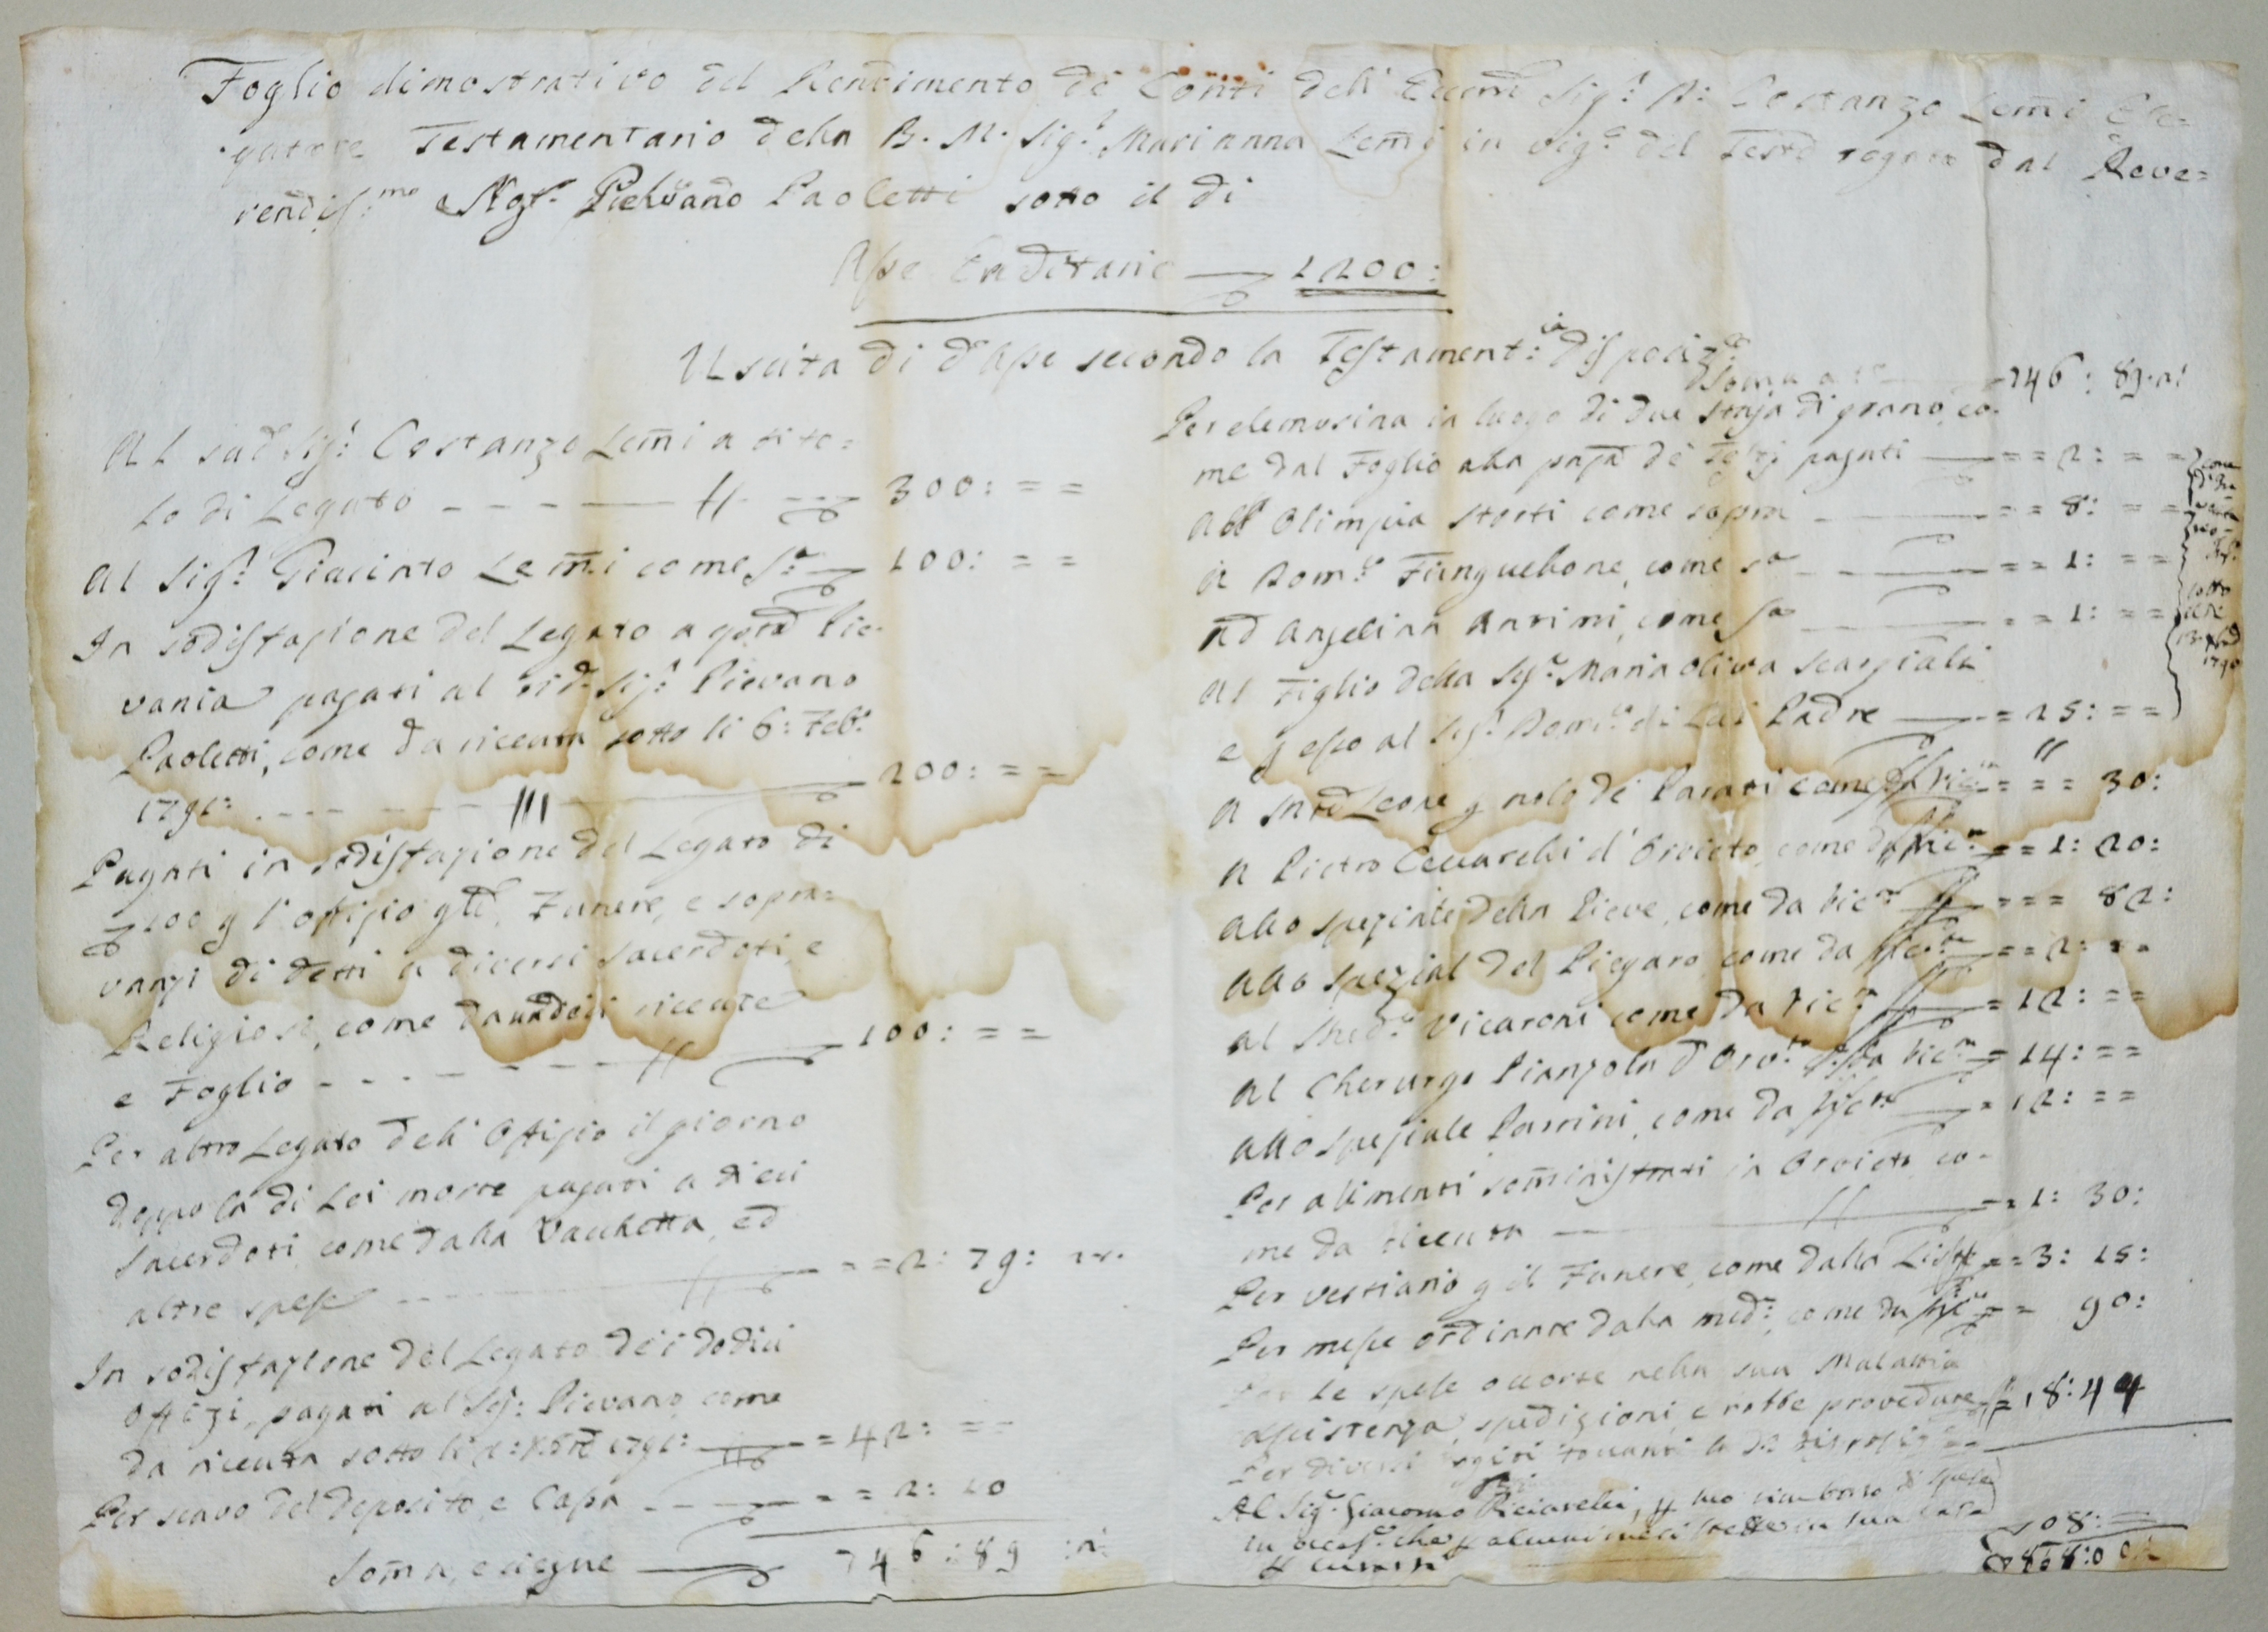 Foglio dimostrativo del Rendimento de' Conti dell' Eccm̃o Sig.r D: Costanzo Lem̃i Ese=
qutore Testamentario della B. M. Sig.ra Marianna Lem̃i in vig.e del Testo rogato dal Reve=
rendiss:mo Pievano Paoletti sotto il di
Asse Ereditario 1200:
Uscita di do Asse secondo la Testament:ia disposiz.e
Al sudo Sig.r Costanzo Lem̃i a tito=
lo di Legato 300: = =
Al Sig.r Giacinto Lem̃i come s.a 100: = =
In sodisfazione del Legato a Pie-
vania pagati al Sig.r Pievano
Paoletti, come da ricevuta sotto li 6: Feb.o
1791: 200: = =
Pagati in sodisfazione del Legato di
100 p l'offizio Funere, e sopra=
vanzi di detti a diversi Sacerdoti, e
Religiosi, come da ricevute
e Foglio 100: = =
Per altro Legato dell' Offizio il giorno
doppo la di Lei morte pagati a dieci
Sacerdoti come dalla Vacchetta, ed
altre spese = = 2: 79:
In sodisfazione del Legato dei dodici
Offizi, pagati al Sig.r Pievano, come
da ricevuta sotto li 1791: = 42: = =
Per scavo del deposito, e Cassa = = 2: 10
Som̃a, e siegue 746: 89
Som̃a 746: 89
Per elemosina in luogo di due staja di grano, co-
me dal Foglio alla pag.a de pagati = = 2: = =
All Olimpia Storti come sopra = = 8: = =
A Dom.co Funghebone, come s.a = = 1: = =
Ad Angelina Antimi, come s.a = = 1: = =
Al Figlio della Sig.ra Maria Oliva Scarpiatti
e p esso al Sig.r Dom.co di Lui Padre = 25: = =
come
sotto
1790
A Leone p nolo de' Parati come da ric.ta = = = 30:
A Pietro Ceccarelli d'Orvieto, come da ric.ta = = 1: 20:
Allo speziale della Pieve, come da ric.ta = = = 82:
Allo spezial del Piegaro come da ric.ta = = 2: = =
Al Med.o Vicaroni come da ric.ta = 12: = =
Al Cherurgo Pianzola d'Orv.to da ric.ta = 14: = =
Allo speziale Parrini, come da ric.ta = 12: = =
Per alimenti som̃inistrati in Orvieto co-
me da ricevuta = 1: 30:
Per vestiario p il Funere, come dalla Lista = = 3: 15:
Per messe ordinate dalla med.a, come da ric.ta = = 90:
Per le spese occorse nella sua Malattia
assistenza, spedizioni, e robbe provedute 18: 44
Per diversi toccanti la
Al Sig.r Giacomo Ricciarelli, p suo rimborso di spese
in che p alcuni mesi stette in sua casa
108: =